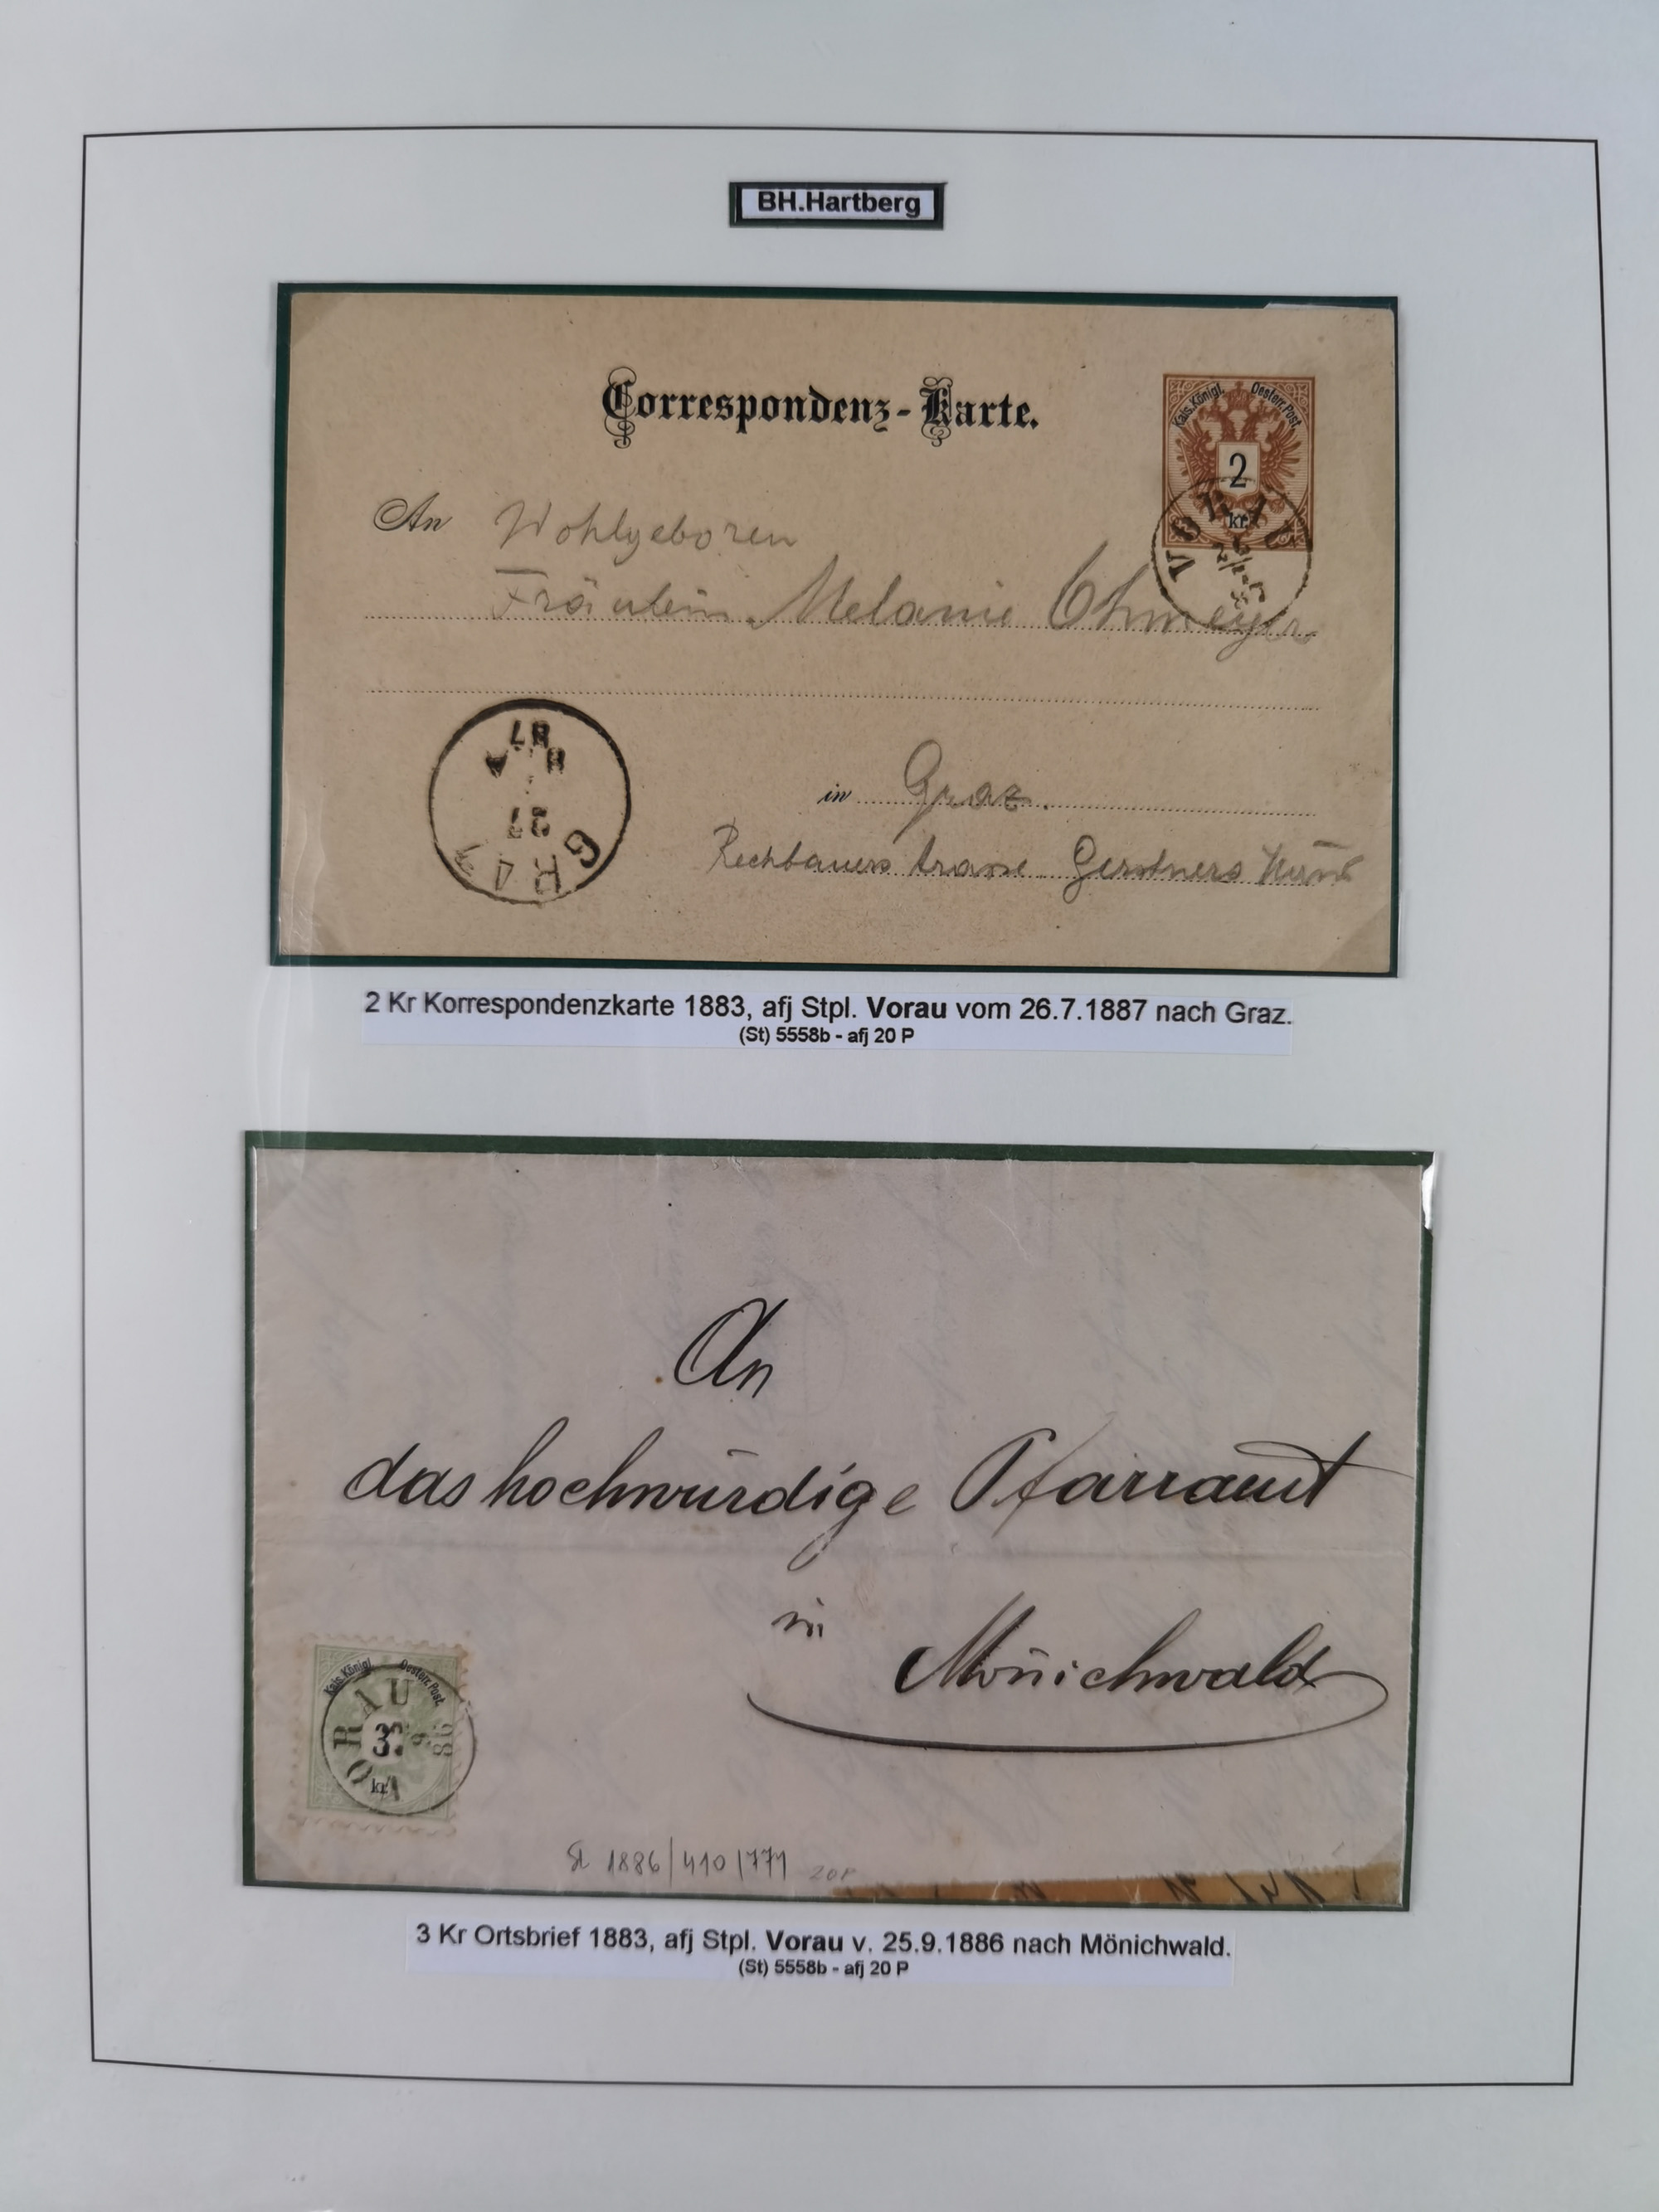 BH.Hartberg
Correspondenz-Karte.
Kais. Königl. Oesterr. Post.
2
kr.
VORAU
An Wohlgeboren
Fräulein Melanie Ohmeyer
GRAZ
27
87
in Graz.
Rechbauerstrasse Gerstners
2 Kr Korrespondenzkarte 1883, afj Stpl. Vorau vom 26.7.1887 nach Graz.
(St) 5558b - afj 20 P
An
das hochwürdige Pfarramt
in
Mönichwald
Kais. Königl. Oesterr. Post.
3
kr.
VORAU
9
86
St 1886/410/771 20P
3 Kr Ortsbrief 1883, afj Stpl. Vorau v. 25.9.1886 nach Mönichwald.
(St) 5558b - afj 20 P